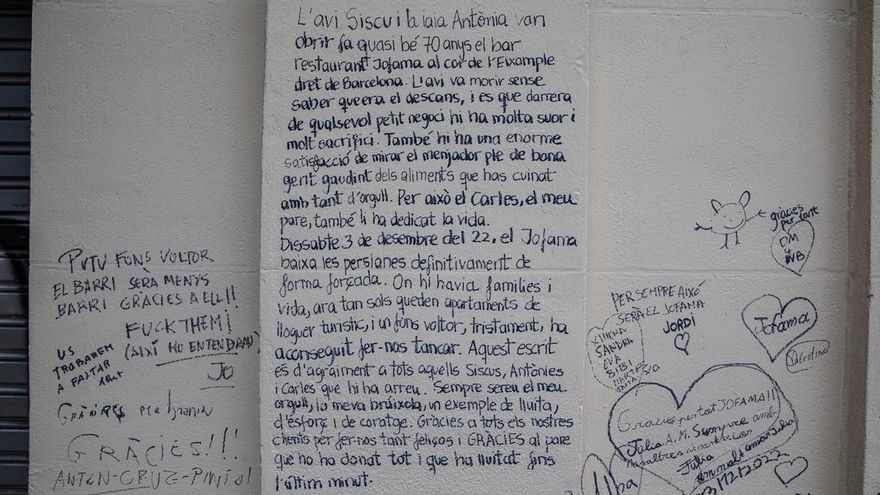 L'avi Siscu i la iaia Antònia van
obrir fa quasi bé 70 anys el bar
restaurant Jofama al cor de l'Eixample
dret de Barcelona. L'avi va morir sense
saber que era el descans, i es que darrera
de qualsevol petit negoci hi ha molta suor i
molt sacrifici. També hi ha una enorme
satisfacció de mirar el menjador ple de bona
gent gaudint dels aliments que has cuinat
amb tant d'orgull. Per això el Carles, el meu
pare, també li ha dedicat la vida.
Dissabte 3 de desembre del 22, el Jofama
baixa les persianes definitivament de
forma forçada. On hi havia families i
vida, ara tan sols queden apartaments de
lloguer turistic, i un fons voltor, tristament, ha
aconseguit fer-nos tancar. Aquest escrit
es d'agraiment a tots aquells Siscus, Antònies
i Carles que hi ha arreu. Sempre sereu el meu
orgull, la meva brúixola, un exemple de lluita,
d'esforç i de coratge. Gràcies a tots els nostres
clients per fer-nos tant feliços i GRÀCIES al pare
que no ha donat tot i que ha lluitat fins
l'últim minut.
PUTU FONS VOLTOR
EL BARRI SERÀ MENYS
BARRI GRÀCIES A ELL!!
FUCK THEM!
(AIXÍ HO ENTENDRAN)
JO
US
TROBAREM
A FALTAR
GRÀCIES!!!
ANTEN-CRUZE-PINTO!
gràcies
per tant
DM
PER SEMPRE AIXÓ
SERÀ EL JOFAMA
JORDI
XIMENA
SANDRA
EVA
BIBI
Jofama
Valentina
Gracies per tot JOFAMA!!
Júlia A.M. Sempre amb
nosaltres
Júlia
3/12/2022
Alba